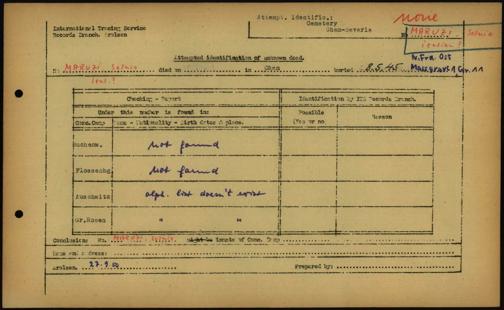 none
Attempt. Identific.:
Cemetery
Cham-Severla
International Tracing Service
Records Branch. Arolsen
No MARUZI Selnio
W.Fra. Ost
Massgrave 1 Gr. 11
Attempted identification of unknown dead.
No MARUZI Selnio died on in Cham buried 8.5.45
Checking - Report
Identification by ITS Records Branch.
Under this number is found in:
Conc.Camp Name - Nationality - Birth date & place.
Possible
(Yes or no
Reason
Buchenw. not found
Flossenbg. not found
Auschwitz alph. list doesn't exist
Gr.Rosen " "
Conclusion: No. MARUZI Selnio. might be inmate of Conc. Camp
Home and address:
Arolsen, 27.9.50 Prepared by: